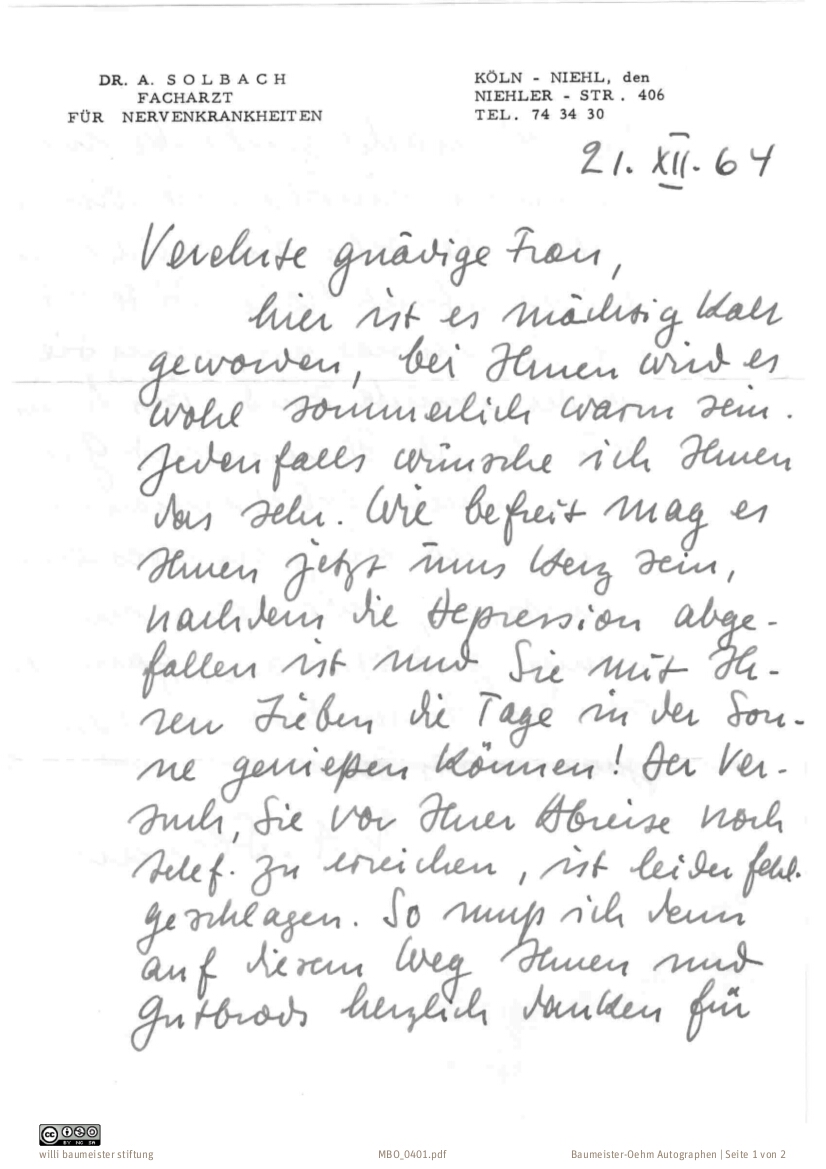 DR. A. SOLBACH
FACHARZT
FÜR NERVENKRANKHEITEN
KÖLN - NIEHL, den
NIEHLER - STR. 406
TEL. 74 34 30
21. XII. 64
Verehrte gnädige Frau,
hier ist es mächtig kalt
geworden, bei Ihnen wird es
wohl sommerlich warm sein.
Jedenfalls wünsche ich Ihnen
das sehr. Wie befreit mag es
Ihnen jetzt ums Herz sein,
nachdem die Depression abge-
fallen ist und Sie mit Ih-
ren Lieben die Tage in der Son-
ne genießen können! Der Ver-
such, Sie vor Ihrer Abreise noch
telef. zu erreichen, ist leider fehl-
geschlagen. So muß ich denn
auf diesem Weg Ihnen und
Gutbrods herzlich danken für
CC BY NC SA
willi baumeister stiftung
MBO_0401.pdf
Baumeister-Oehm Autographen | Seite 1 von 2